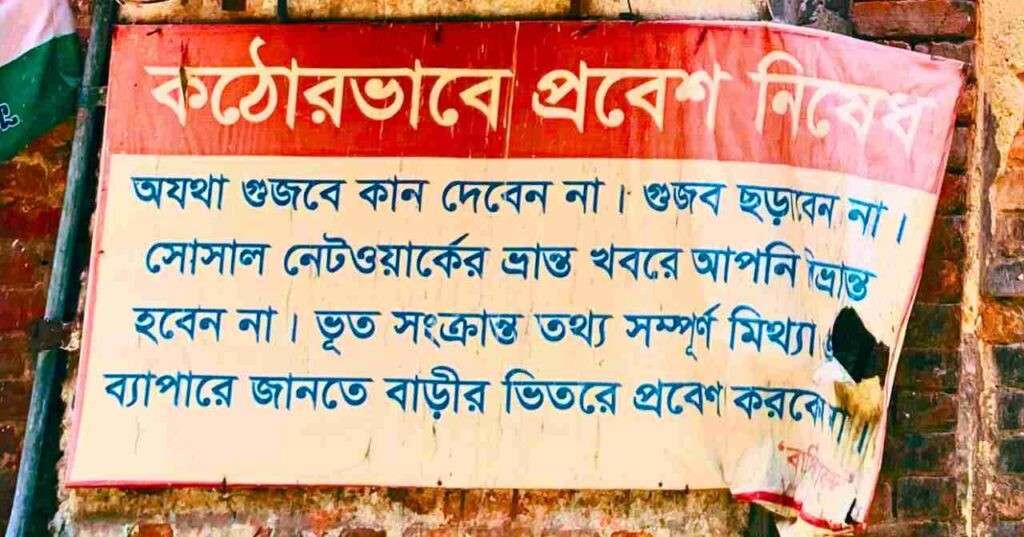 কঠোরভাবে প্রবেশ নিষেধ
অযথা গুজবে কান দেবেন না। গুজব ছড়াবেন না।
সোসাল নেটওয়ার্কের ভ্রান্ত খবরে আপনি ভ্রান্ত
হবেন না। ভূত সংক্রান্ত তথ্য সম্পূর্ণ মিথ্যা
ব্যাপারে জানতে বাড়ীর ভিতরে প্রবেশ করবেন না।